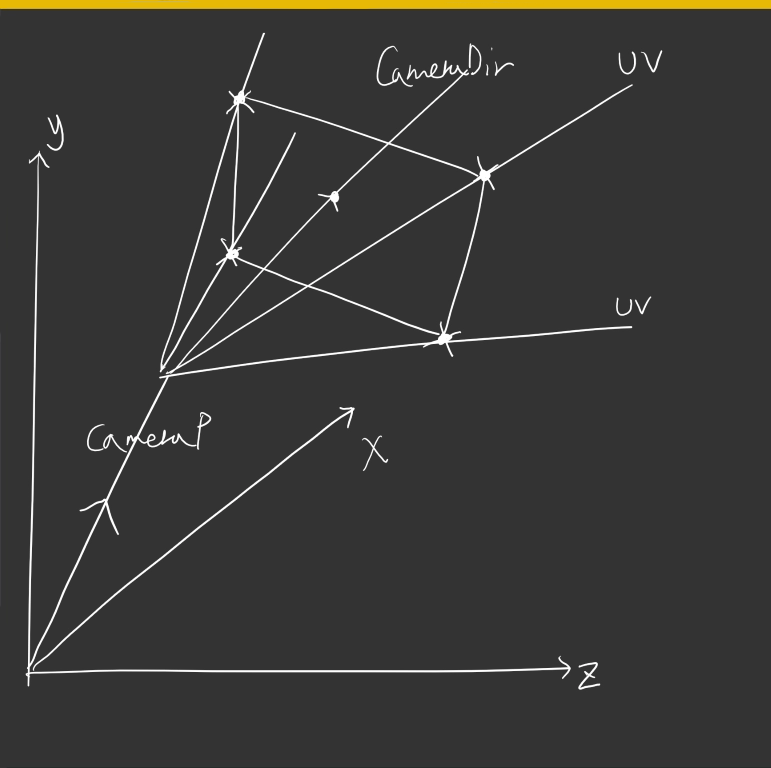 CameraDir
UV
y
UV
CameraP
X
Z